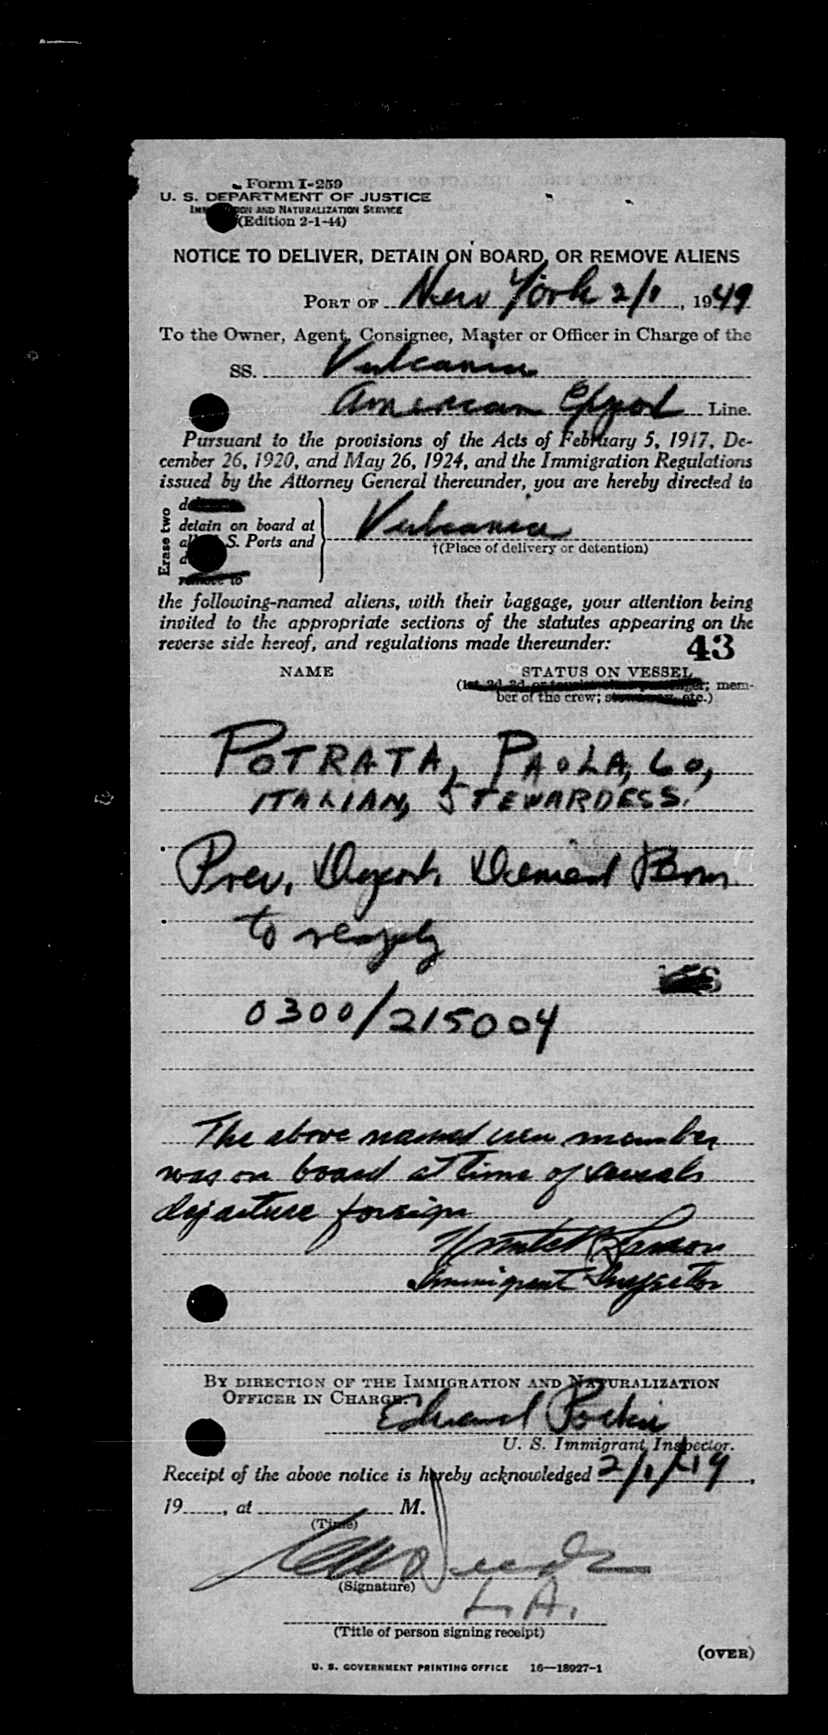 Form I-259
U. S. DEPARTMENT OF JUSTICE
AND NATURALIZATION SERVICE
(Edition 2-1-44)
NOTICE TO DELIVER, DETAIN ON BOARD, OR REMOVE ALIENS
PORT OF New York 2/1, 1949
To the Owner, Agent, Consignee, Master or Officer in Charge of the
SS. Vulcania
American Export Line.
Pursuant to the provisions of the Acts of February 5, 1917, De-
cember 26, 1920, and May 26, 1924, and the Immigration Regulations
issued by the Attorney General thereunder, you are hereby directed to
Erase two
detain on board at
S. Ports and
remove to
Vulcania
†(Place of delivery or detention)
the following-named aliens, with their baggage, your attention being
invited to the appropriate sections of the statutes appearing on the
reverse side hereof, and regulations made thereunder:
43
NAME STATUS ON VESSEL
mem-
ber of the crew; etc.)
POTRATA, PAOLA, 60,
ITALIAN, STEWARDESS.
Prev. Deport. Denied Perm
to reapply
0300/215004
The above named crew member
was on board at time of vessels
departure foreign
Immigrant Inspector
BY DIRECTION OF THE IMMIGRATION AND NATURALIZATION
OFFICER IN CHARGE.
Edward
U. S. Immigrant Inspector.
Receipt of the above notice is hereby acknowledged 2/1/49,
19 , at M.
(Time)
(Signature)
L. A.
(Title of person signing receipt)
(OVER)
U. S. GOVERNMENT PRINTING OFFICE 16—18927-1